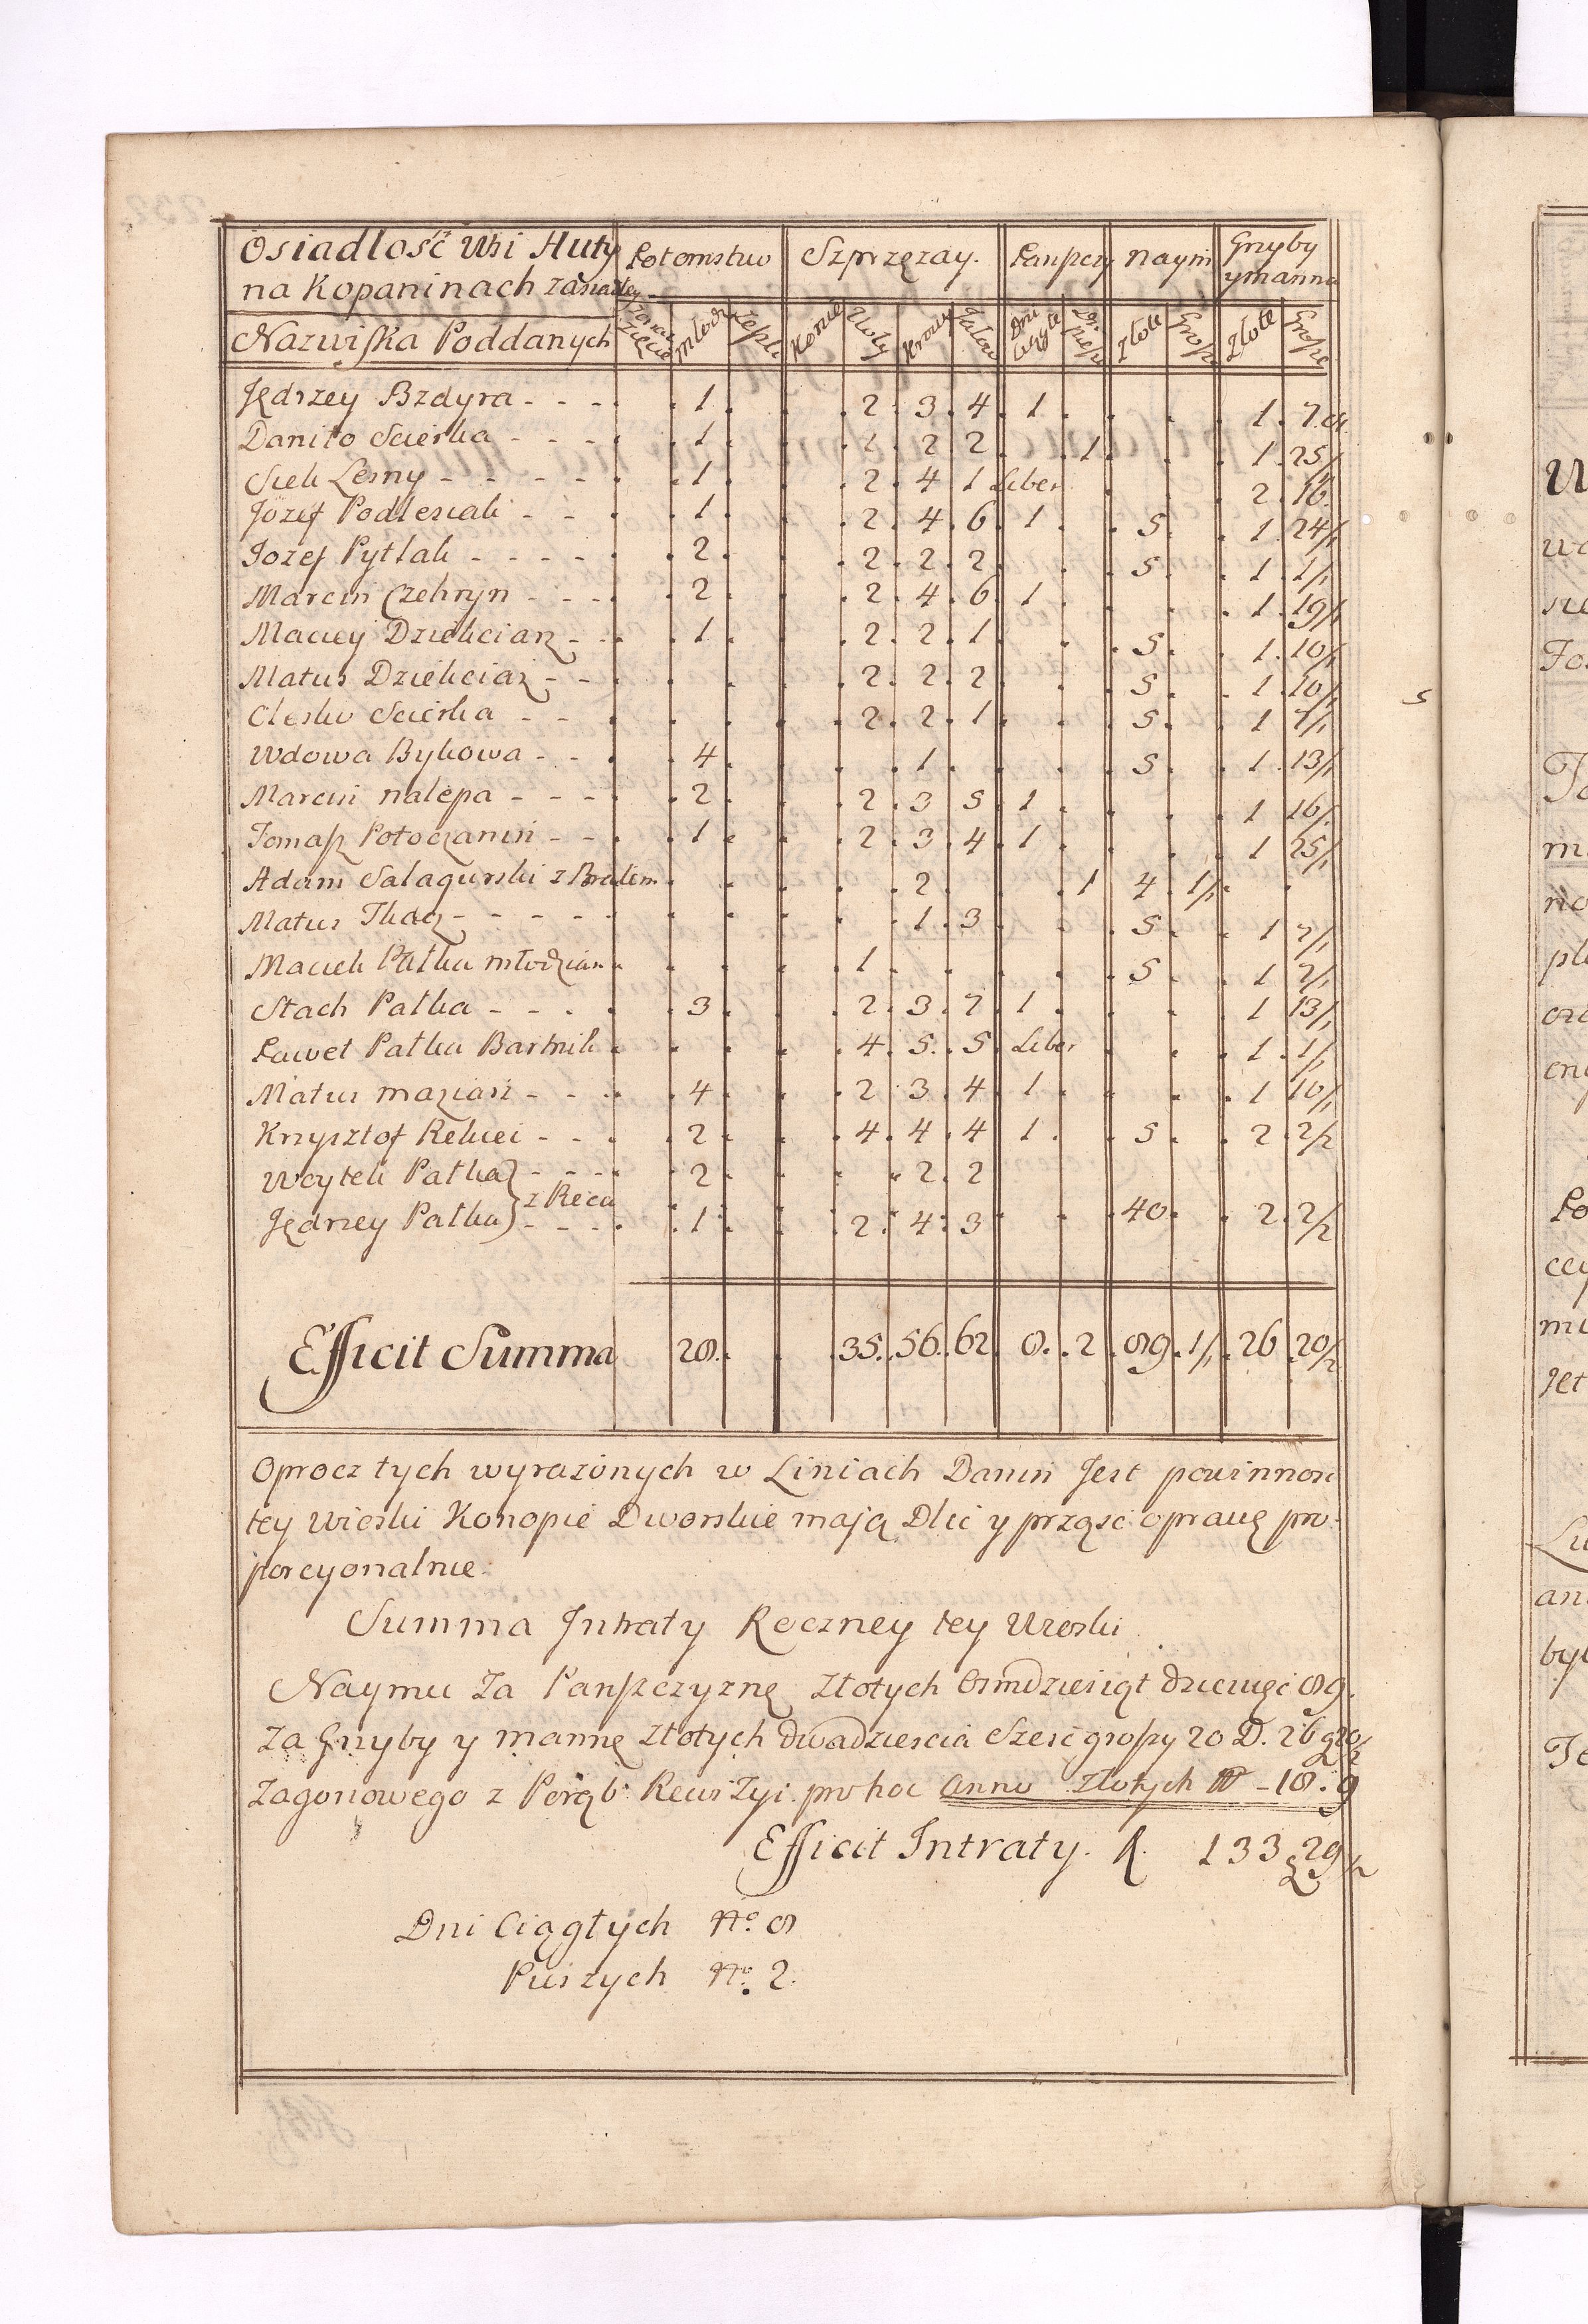 Osiadlość Wsi Huty Potomstwo Szprzęzay. Panpczy naym Grzyby
na Kopaninach zasiadłey ymanna
Nazwiska Poddanych Młodz Konie Woły Krowy Jałow Dni Ciągłe Złote Grosze Złote Grosze
Jędrzey Bzdyra - - - 1 2 3 4 1 1 7
Daniło Scieska - - - 1 1 2 2 1 1 25/1
Sieli Lesny - - - - 1 2 4 1 Liber 2 16
Jozef Podlesiak - - 1 2 4 6 1 5 1 24/1
Jozef Pytlak - - - - 2 2 2 2 5 1 1/1
Marcin Czehryn - - - 2 2 4 6 1 1 19/1
Maciey Dziekciarz - - 1 2 2 1 5 1 10/1
Matus Dziekciarz - - 2 2 2 5 1 10/1
Olesko Scieska - - 2 2 1 5 1 7/1
Wdowa Bykowa - - 4 1 5 1 13/1
Marcin nalepa - - - 2 2 3 5 1 1 16/1
Tomasz Potoczanin - - 1 2 3 4 1 1 25/1
Adam Salagurski z Bratem 2 1 4 1/1
Matus Tkacz - - - - 1 3 5 1 7/1
Maciek Patka młodzian 1 5 1 7/1
Stach Patka - - - 3 2 3 7 1 1 13/1
Paweł Patka Bartnik 4 5 5 Liber 1 1/1
Matus maziarz - - - 4 2 3 4 1 1 10/1
Krzysztof Rekiei - - 2 4 4 4 1 5 2 2/2
Woytek Patka - - - 2 2 2
Jędrzey Patka z Recu - - - 1 2 4 3 40 2 2/2
Efficit Summa 28 35 56 62 8 2 89 1/1 26 20/2
Oprocz tych wyrazonych w Liniach Danin Jest powinnosc
tey Wioski Konopie Dworskie mają Dlic y prząsc oprawę pro-
porcyonalnie.
Summa Jntraty Roczney tey Wioski
Naymu Za Panszczyznę Złotych Osmdziesiąt dziewięć 89.
Za Grzyby y mannę Złotych dwadziescia Szesc groszy 20 D. 26 g 20/2
Zagonowego z Porąb Rewizyi pro hoc anno Złotych - 18. 9
Efficit Intraty. 133 g 29/2
Dni Ciągłych No. 8
Pieszych No. 2.